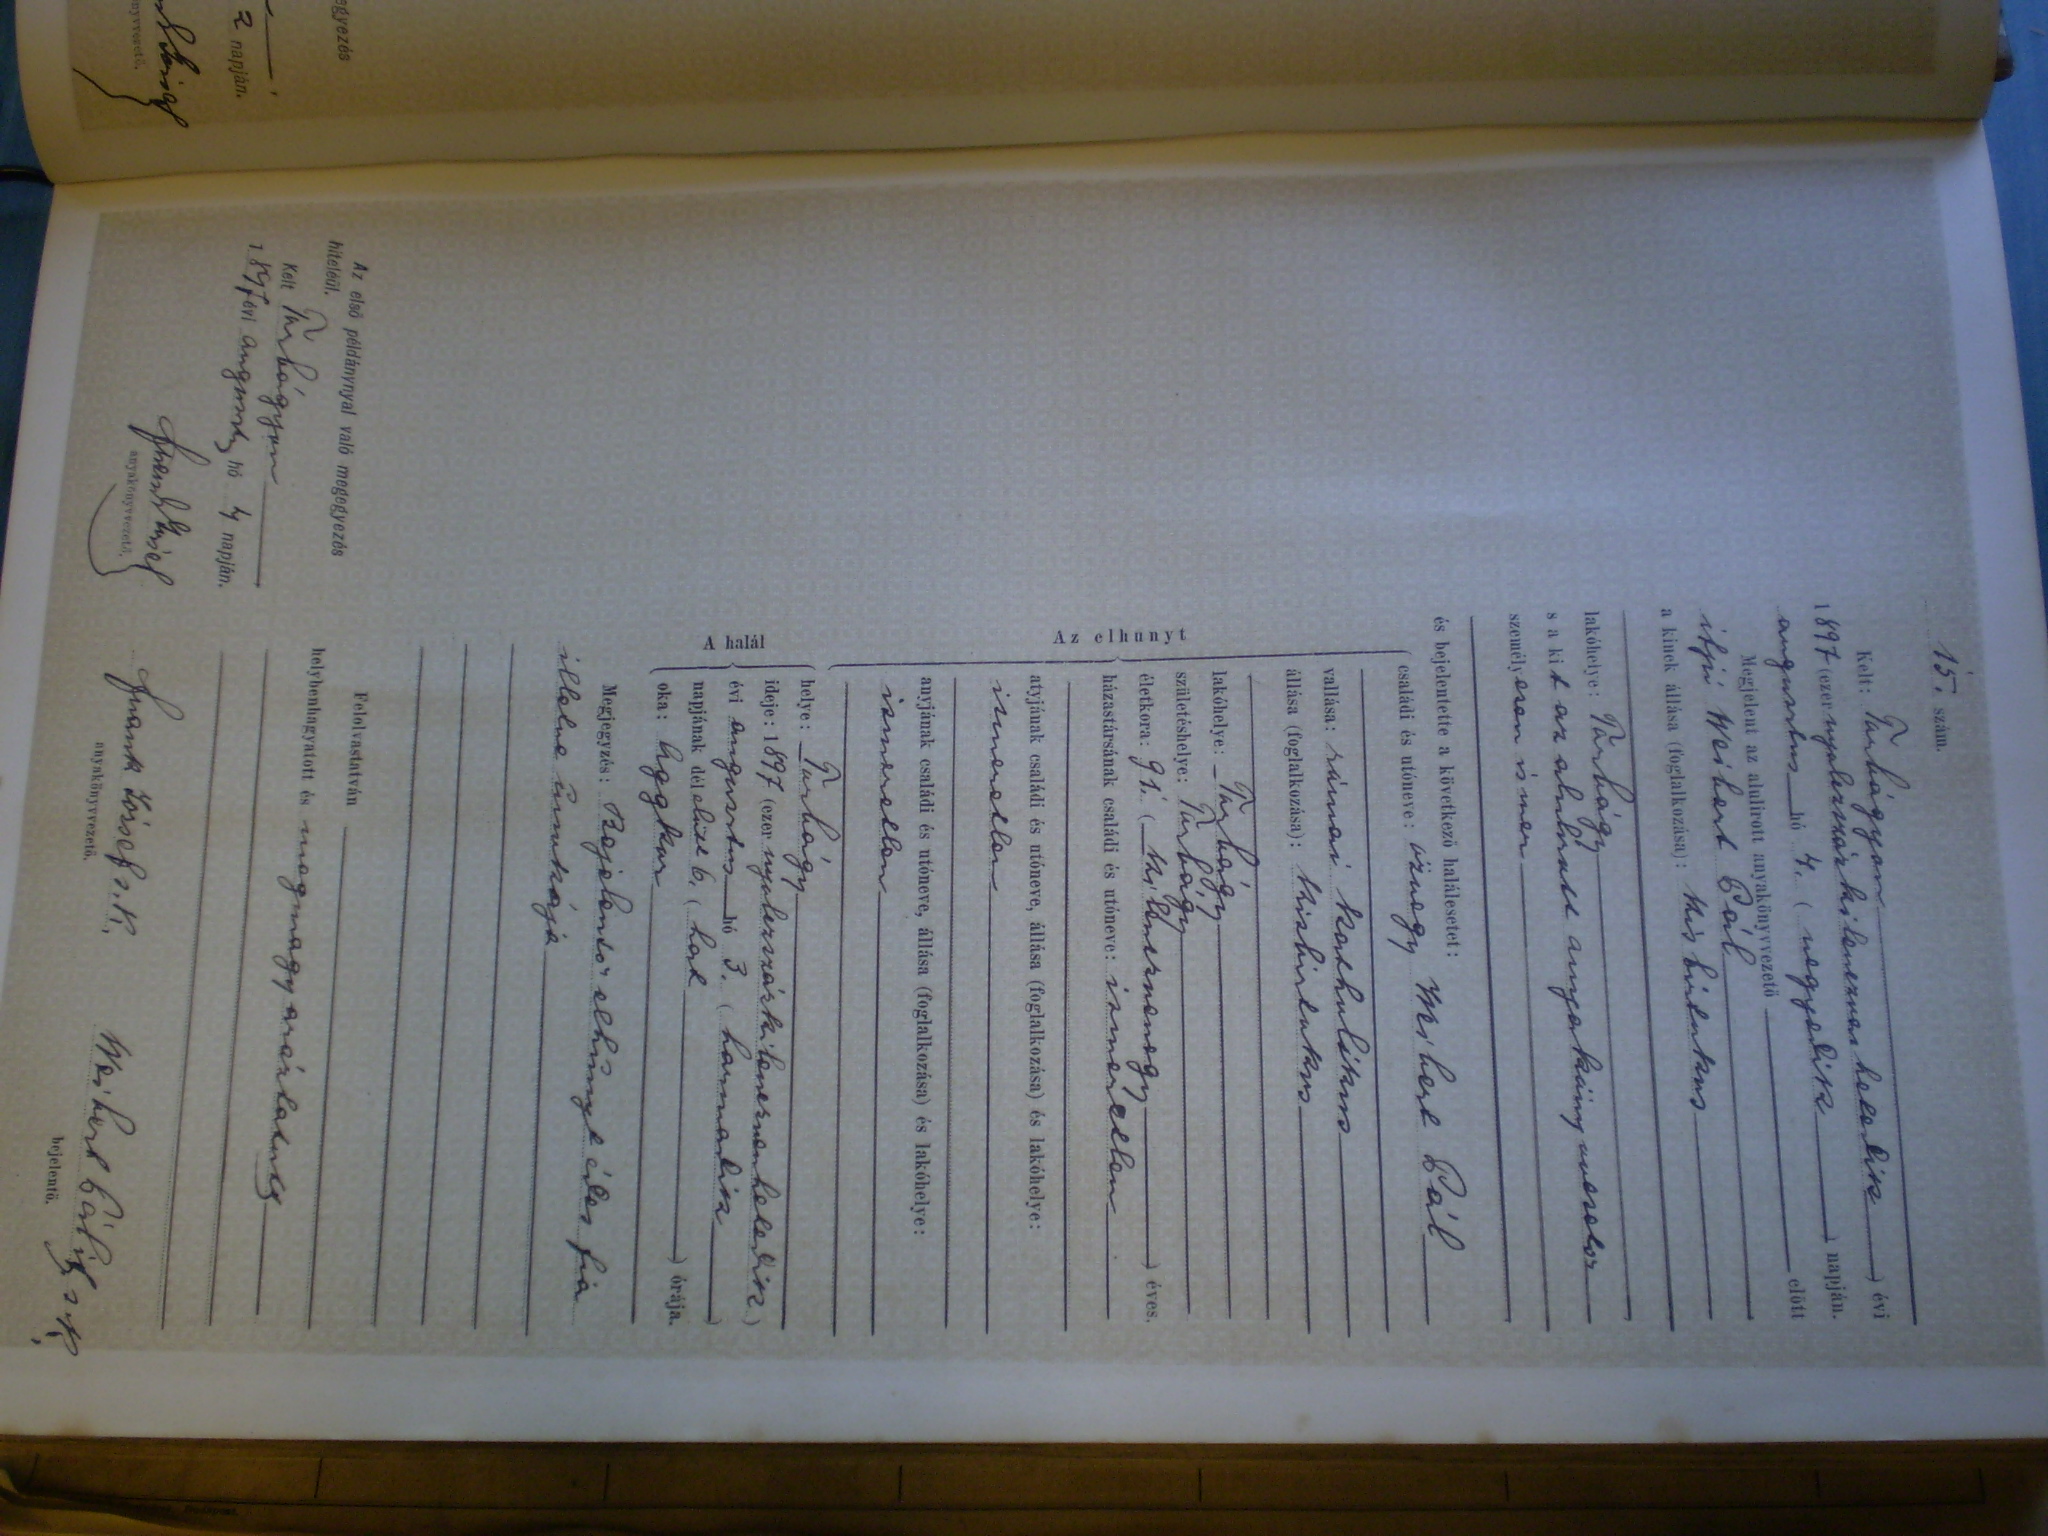 15. szám.
Kelt: Turbágyon évi
1897 (ezer nyolczszázkilenczvenhetedik) évi
augusztus hó 4. ( negyedik ) napján.
Megjelent az alulirott anyakönyvvezető előtt
ifjú Weibert Pál
a kinek állása (foglalkozása): kisbirtokos
lakóhelye: Turbágy
s a kit az alulirott anyakönyvvezető
személyesen ismer
és bejelentette a következő halálesetet:
Az elhunyt
családi és utóneve: özvegy Weibert Pál
vallása: római katholikus
állása (foglalkozása): kisbirtokos
lakóhelye: Turbágy
születéshelye: Turbágy
életkora: 91. ( kilenczvenegy ) éves.
házastársának családi és utóneve: ismeretlen
atyjának családi és utóneve, állása (foglalkozása) és lakóhelye:
ismeretlen
anyjának családi és utóneve, állása (foglalkozása) és lakóhelye:
ismeretlen
A halál
helye: Turbágy
ideje: 1897 (ezer nyolczszázkilenczvenhetedik)
évi augusztus hó 3. ( harmadik )
napjának délelőtt 6. ( hat ) órája.
oka: Aggkor
Megjegyzés: Bejelentő elhúnyt édes fia
illetve únokája
Felolvastatván
helybenhagyatott és megmagyaráztatott
Frank József s.k.
anyakönyvvezető.
Weibert Pál ifj s.k.
bejelentő.
Az első példánynyal való megegyezés
hiteléül.
Kelt Turbágyon
1897 évi augusztus hó 4 napján.
Frank József
anyakönyvvezető.
egyezés
2 napján.
nyvvezető.